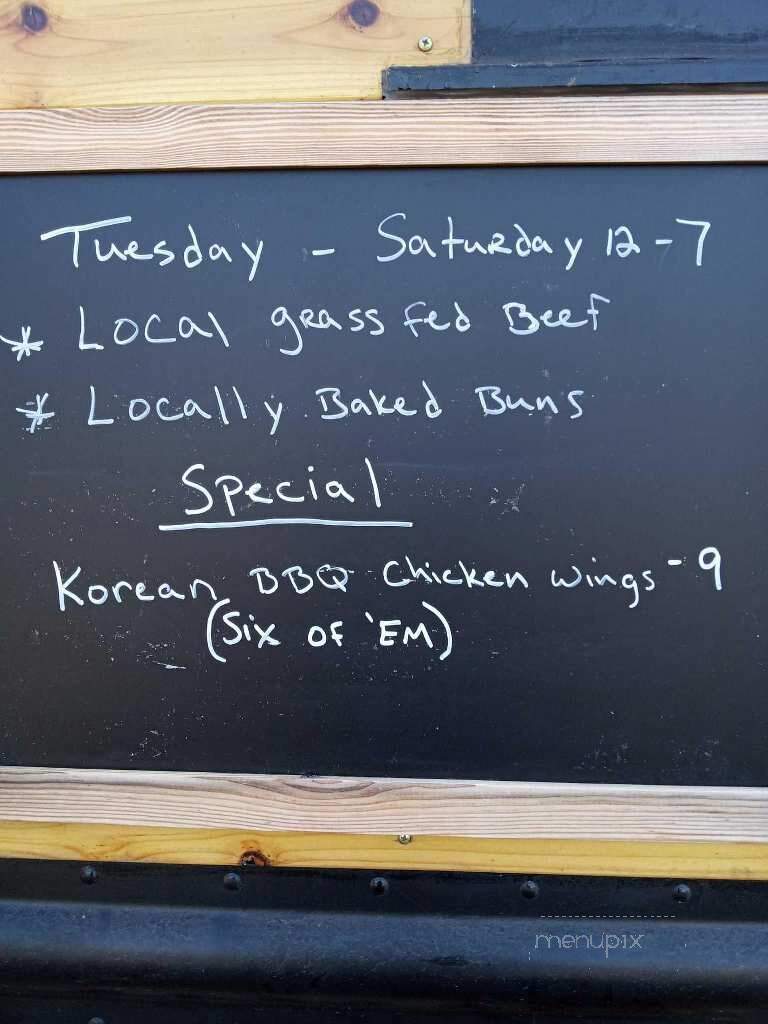 Tuesday - Saturday 12-7
* Local grass fed Beef
* Locally Baked Buns
Special
Korean BBQ Chicken wings - 9
(Six OF 'EM)
menupix